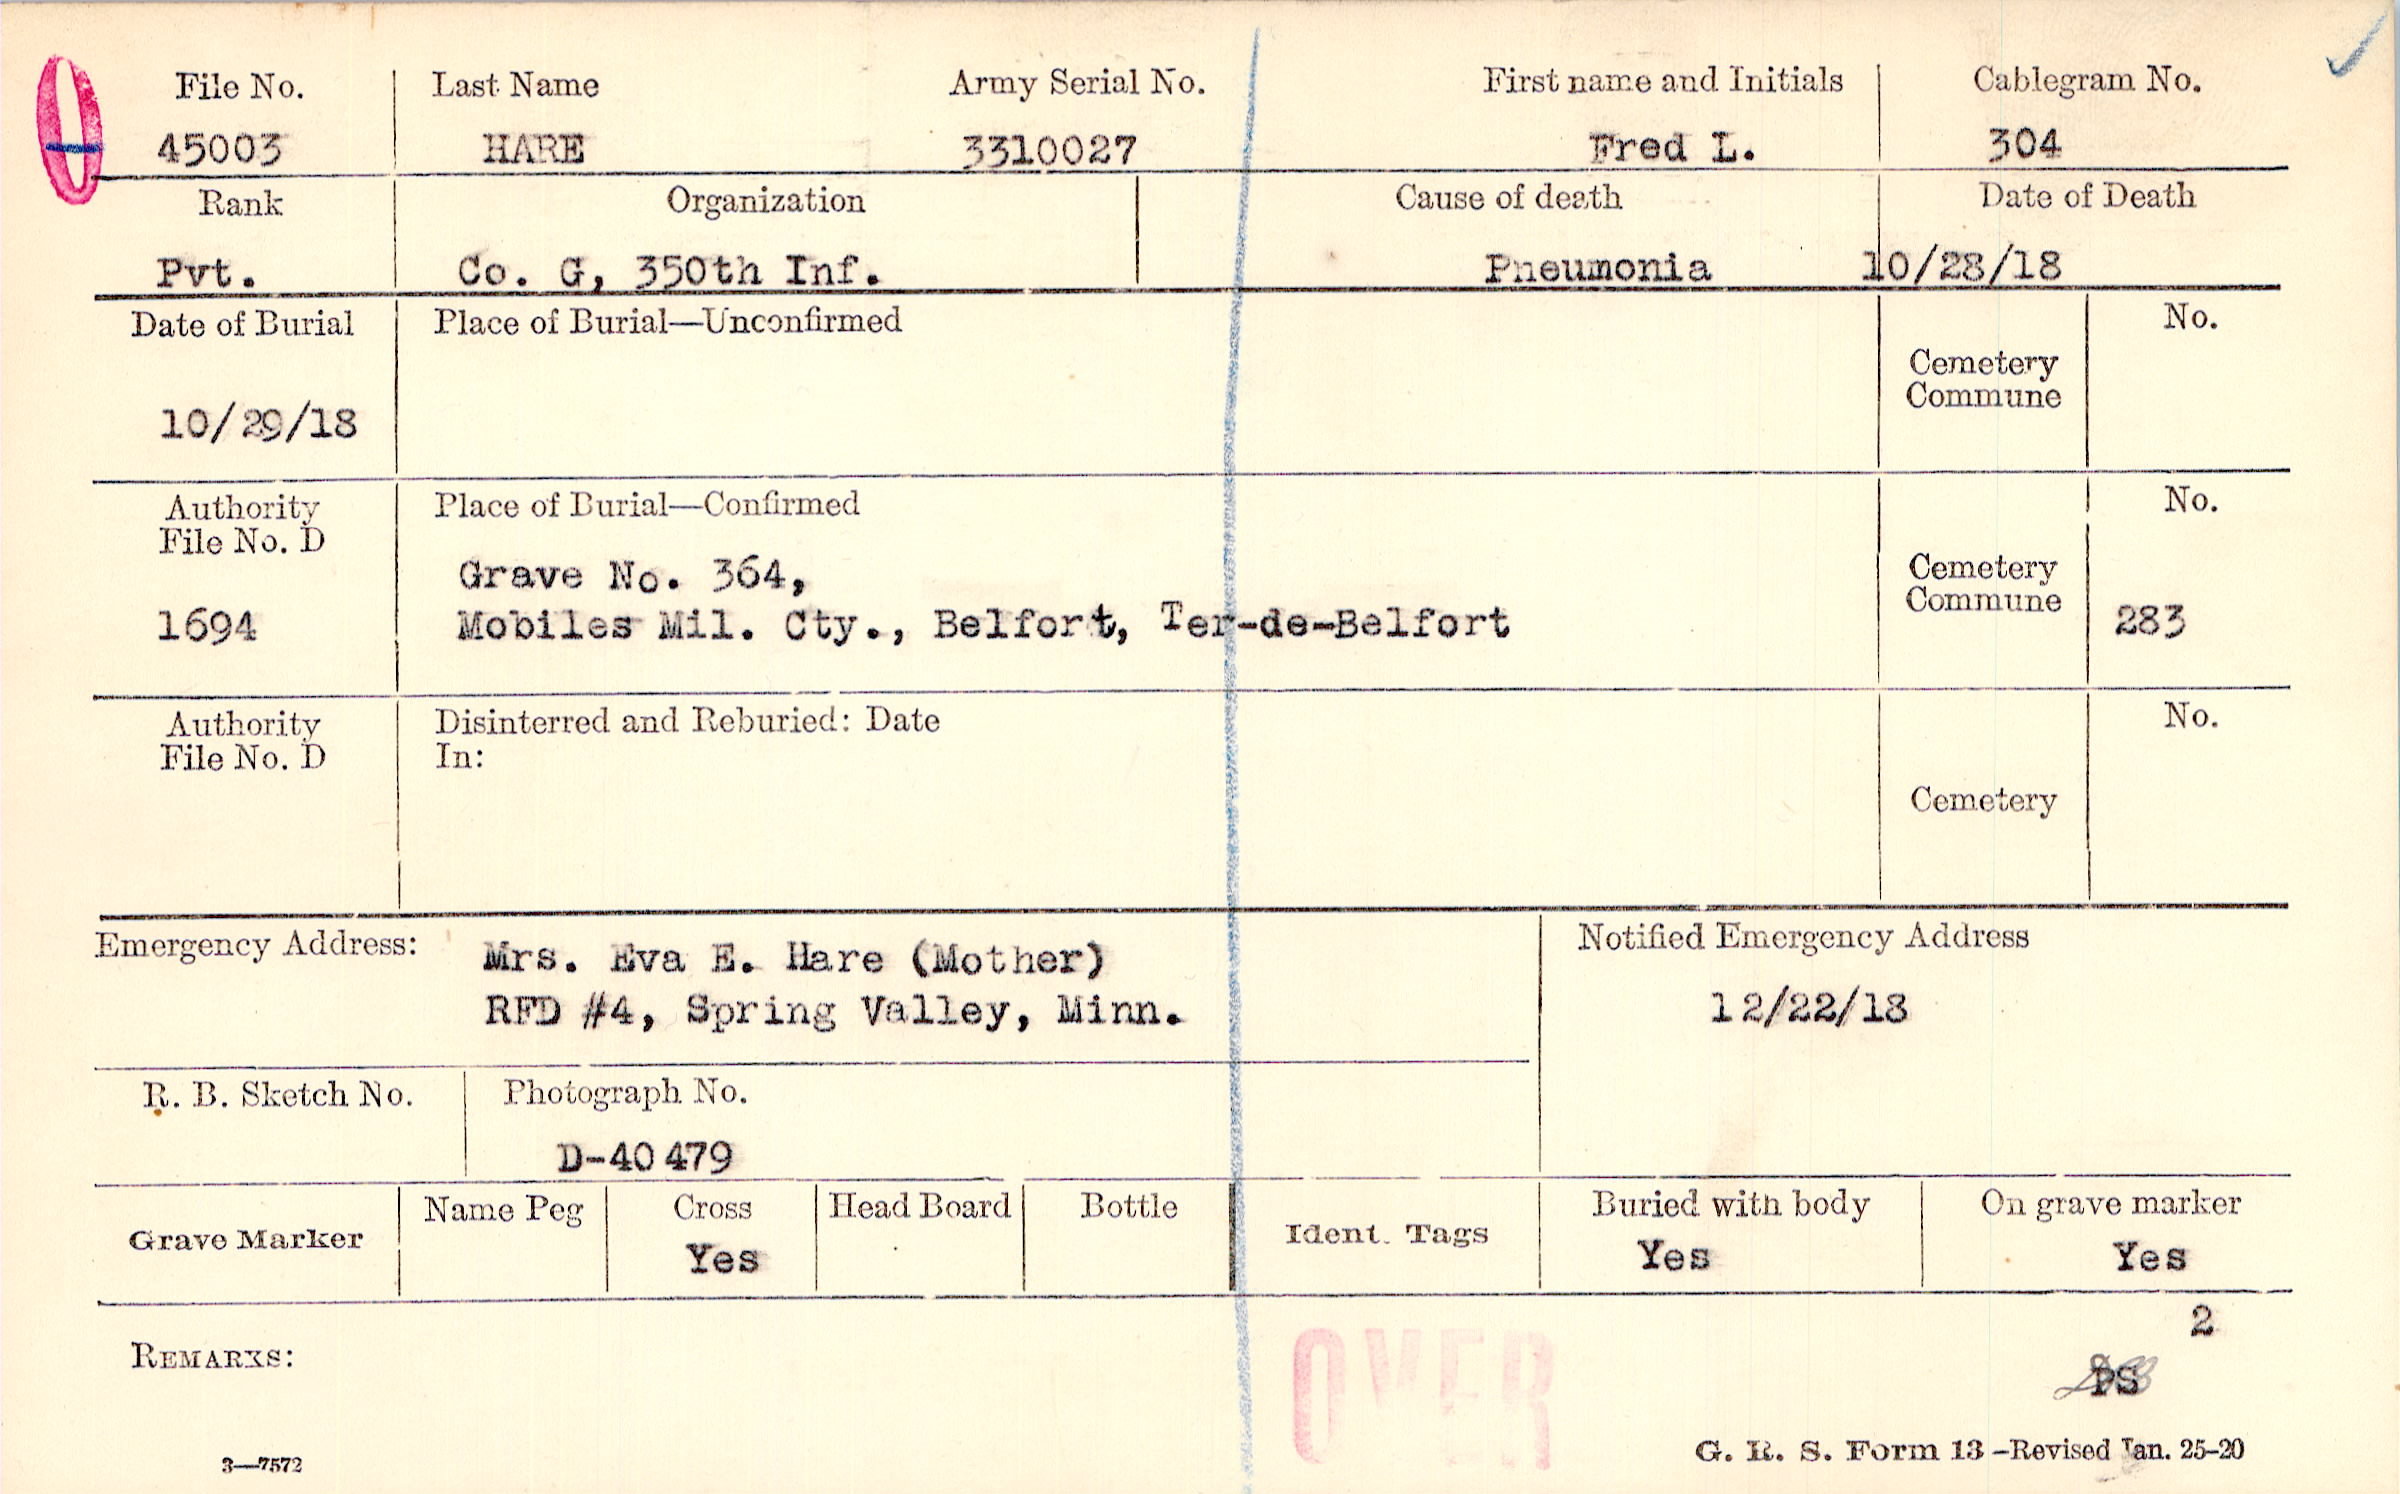 File No. Last Name Army Serial No. First name and Initials Cablegram No.
45003 HARE 3310027 Fred L. 304
Rank Organization Cause of death Date of Death
Pvt. Co. G, 350th Inf. Pneumonia 10/28/18
Date of Burial Place of Burial—Unconfirmed No.
Cemetery
Commune
10/29/18
Authority Place of Burial—Confirmed No.
File No. D
Grave No. 364,
Cemetery
Commune
1694 Mobiles Mil. Cty., Belfort, Ter-de-Belfort 283
Authority Disinterred and Reburied: Date No.
File No. D In:
Cemetery
Emergency Address: Mrs. Eva E. Hare (Mother) Notified Emergency Address
RFD #4, Spring Valley, Minn. 12/22/18
R. B. Sketch No. Photograph No.
D-40479
Grave Marker Name Peg Cross Head Board Bottle Ident. Tags Buried with body On grave marker
Yes Yes Yes
2
REMARKS:
OVER
PS
3—7572 G. R. S. Form 13—Revised Jan. 25-20